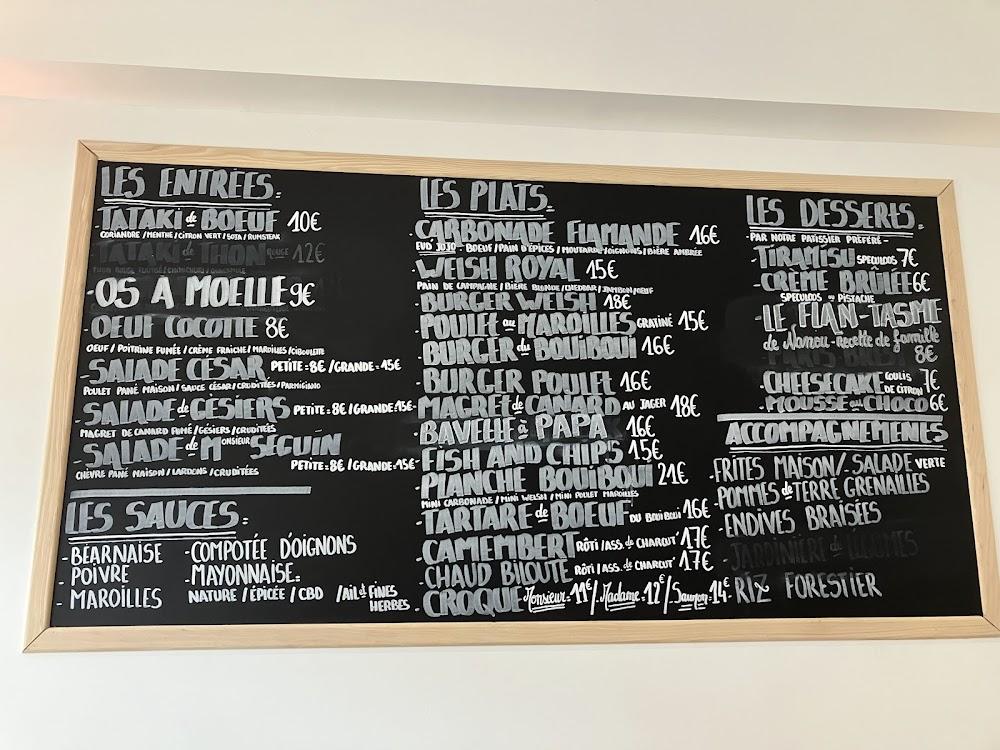 LES ENTRÉES:
-TATAKI de BOEUF 10€
CORIANDRE / MENTHE / CITRON VERT / SOJA / RUMSTEAK
TATAKI de THON ROUGE 12€
-OS A MOELLE 9€
-OEUF COCOTTE 8€
OEUF / POITRINE FUMÉE / CRÈME FRAICHE / MAROILLES / CIBOULETTE
-SALADE CESAR PETITE=8€ / GRANDE=15€
POULET PANÉ MAISON / SAUCE CÉSAR / CRUDITÉES / PARMIGIANO
-SALADE de GÉSIERS PETITE=8€ / GRANDE=15€-
MAGRET DE CANARD FUMÉ / GÉSIERS / CRUDITÉES
-SALADE de MONSIEUR SEGUIN
PETITE=8€ / GRANDE=15€-
CHÈVRE PANÉ MAISON / LARDONS / CRUDITÉES
LES SAUCES:
-BÉARNAISE
- POIVRE
- MAROILLES
-COMPOTÉE D'OIGNONS
-MAYONNAISE:
NATURE / ÉPICÉE / CBD / AIL & FINES
HERBES
LES PLATS-
-CARBONADE FLAMANDE 16€
EUD' JOJO - BOEUF / PAIN D'ÉPICES / MOUTARDE / OIGNONS / BIÈRE AMBRÉE
-WELSH ROYAL 15€
PAIN DE CAMPAGNE / BIÈRE BLONDE / CHEDDAR / JAMBON / OEUF
-BURGER WELSH 18€
-POULET au MAROILLES GRATINÉ 15€
-BURGER du BOUIBOUI 16€
-BURGER POULET 16€
-MAGRET de CANARD AU JAGER 18€
-BAVETTE à PAPA 16€
-FISH AND CHIPS 15€
-PLANCHE BOUIBOUI 21€
MINI CARBONADE / MINI WELSH / MINI POULET MAROILLES
-TARTARE de BOEUF DU BOUIBOUI 16€
-CAMEMBERT RÔTI / ASS. de CHARCUT' 17€
-CHAUD BILOUTE RÔTI / ASS. de CHARCUT' 17€
-CROQUE Monsieur=11€ /. Madame=12€ /. Saumon=14€
LES DESSERTS-
-PAR NOTRE PATISSIER PRÉFÉRÉ-
-TIRAMISU SPECULOOS 7€
-CRÈME BRÛLÉE 6€
SPECULOOS ou PISTACHE
-LE FLAN-TASME
de Nanou-recette de famille
8€
-CHEESECAKE COULIS DE CITRON 7€
-MOUSSE au CHOCO 6€
ACCOMPAGNEMENTS
-FRITES MAISON /-SALADE VERTE
-POMMES de TERRE GRENAILLES
-ENDIVES BRAISÉES
-JARDINIÈRE de LÉGUMES
-RIZ FORESTIER